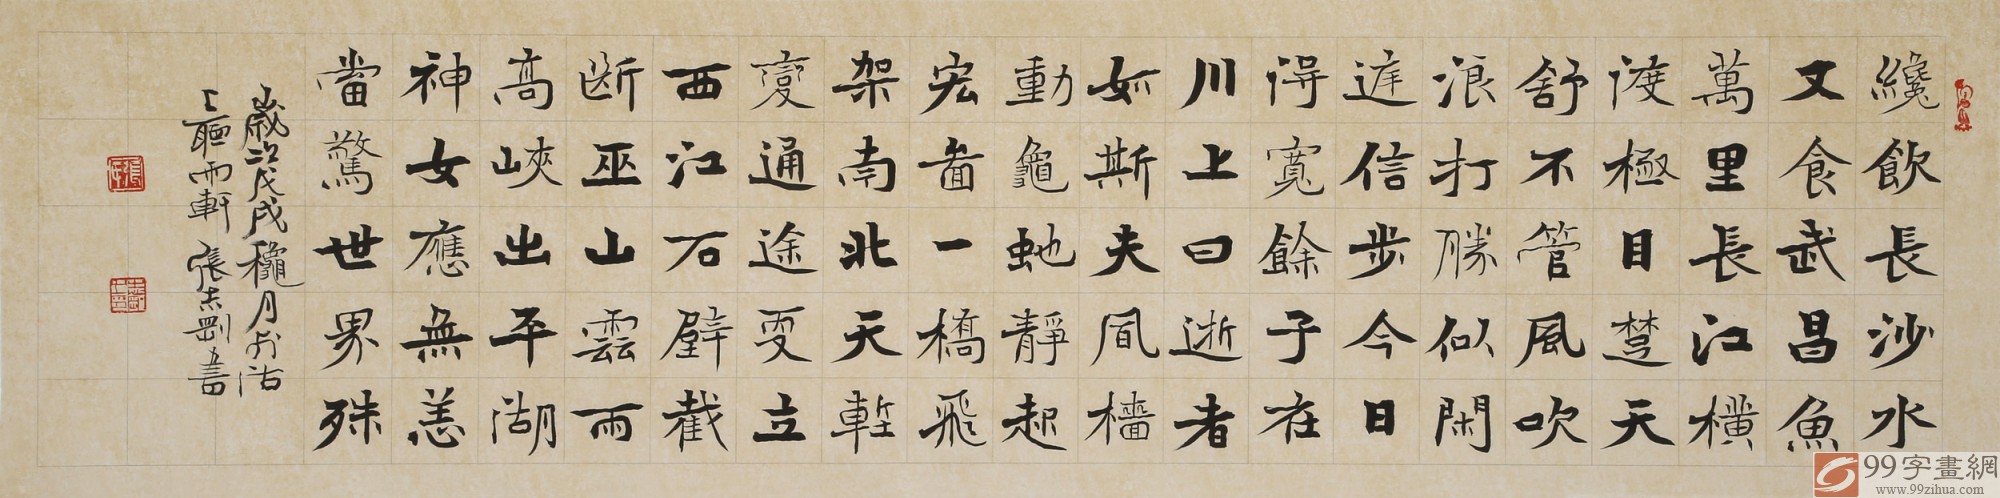 纔飲長沙水
又食武昌魚
萬里長江横
渡極目楚天
舒不管風吹
浪打勝似閑
庭信步今日
得寬餘子在
川上曰逝者
如斯夫風檣
動龜蛇靜起
宏啚一橋飛
架南北天塹
變通途更立
西江石壁截
断巫山雲雨
高峽出平湖
神女應無恙
當驚世界殊
歲次戊戌龝月於沽
上聽雨軒張志剛書
99字畫網
www.99zihua.com